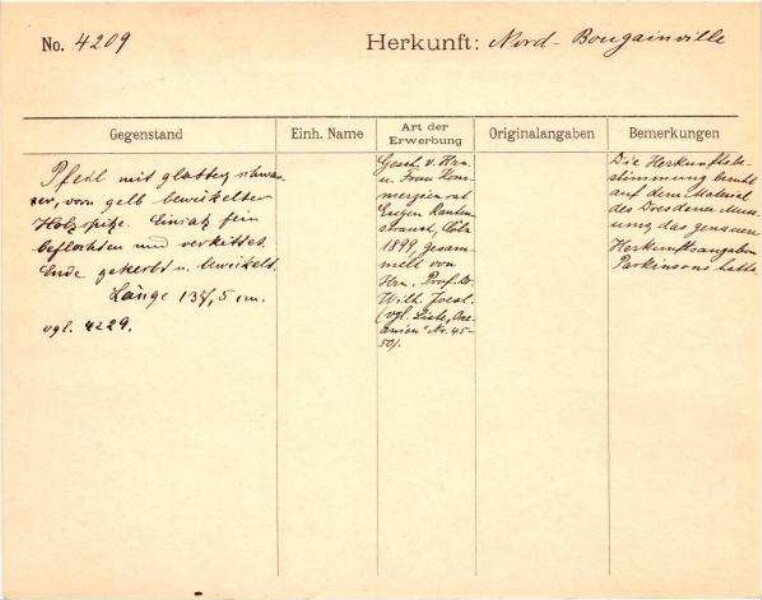 No. 4209
Herkunft: Nord-Bougainville
Gegenstand
Einh. Name
Art der Erwerbung
Originalangaben
Bemerkungen
Pfeil mit glatter, schwar-
zer, vorn gelb bewickelter
Holzspitze. Einsatz fein
beflochten und verkittet.
Ende gekerbt u. bewickelt.
Länge 137,5 cm.
vgl. 4229.
Gesch. v. Hrn.
u. Frau Kom-
merzienrat
Eugen Rauten-
strauch, Cöln
1899, gesam-
melt von
Hrn. Prof. Dr.
Wilh. Joest.
(vgl. Liste „Oze-
anien" Nr. 45-
50).
Die Herkunftsbe-
stimmung beruht
auf dem Material
des Dresdener Mus-
das genauere
Herkunftsangaben
Parkinsons hatte